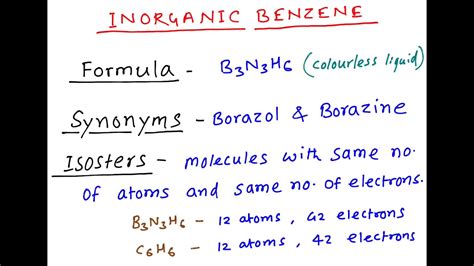 INORGANIC BENZENE
Formula - B3N3H6 (colourless liquid)
Synonyms - Borazol & Borazine
Isosters - molecules with same no.
of atoms and same no. of electrons.
B3N3H6 - 12 atoms, 42 electrons
C6H6 - 12 atoms, 42 electrons